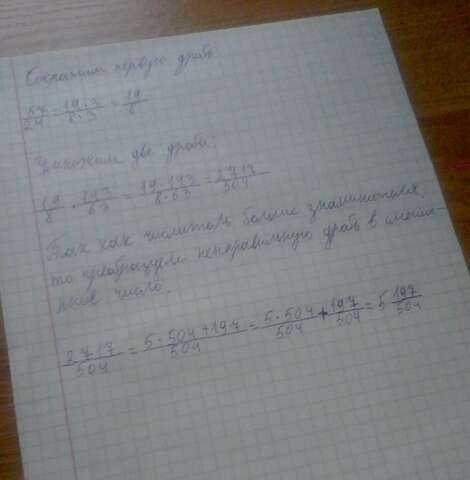 Сократим первую дробь
57/24 = 19·3/8·3 = 19/8
Умножим две дроби:
19/8 · 143/63 = 19·143/8·63 = 2717/504
Так как числитель больше знаменателя,
то преобразуем неправильную дробь в смешан-
ное число.
2717/504 = 5·504+197/504 = 5·504/504 + 197/504 = 5 197/504